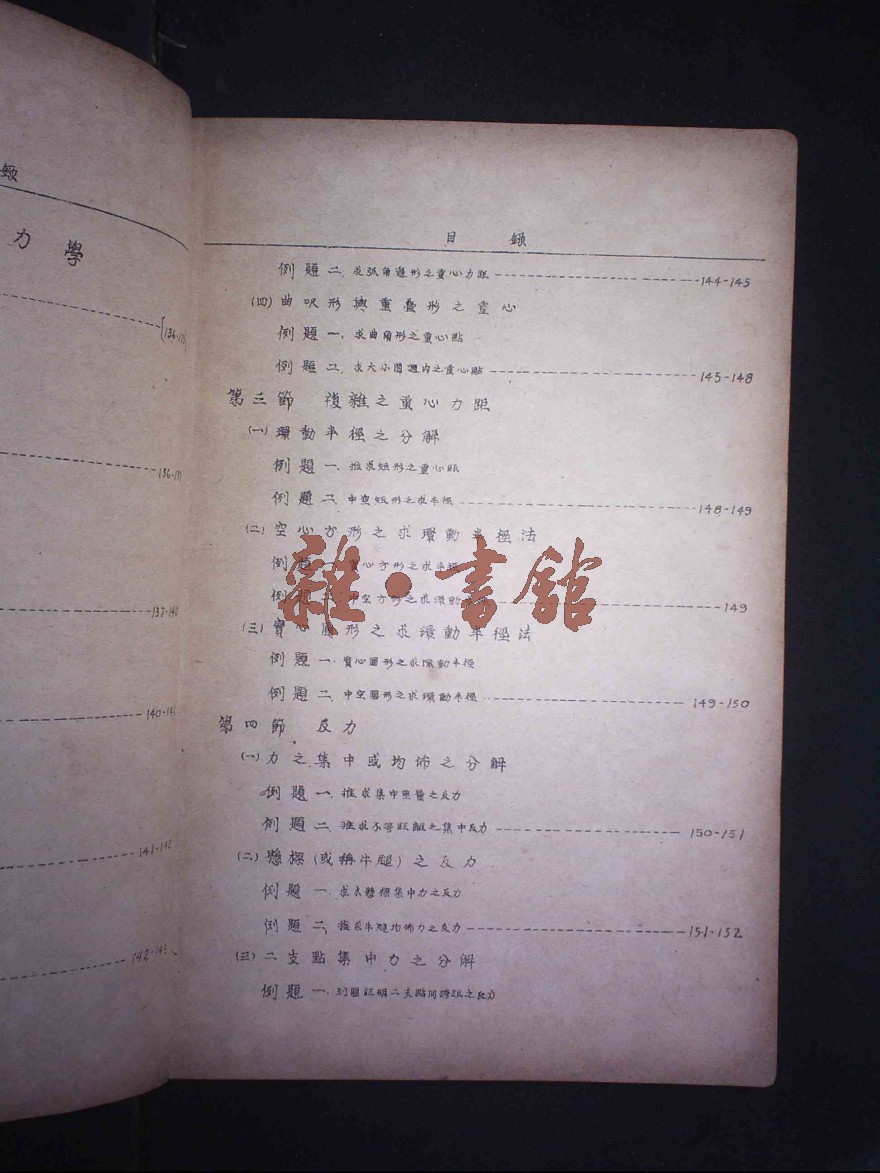 錄
力學
136-13
136-137
137-140
140-141
141-142
142-14
目 錄
例題二、求弧角邊形之重心力距 144-145
(四)曲尺形與重疊形之重心
例題一、求曲角形之重心點
例題二、求大小圓週內之重心點 145-148
第三節 複雜之重心力距
(一)環動半徑之分解
例題一、推求矩形之重心距
例題二、中空矩形之求半徑 148-149
(二)空心方形之求環動半徑法
例題一、實心方形之求半徑
例題二、中空方形之求環動半徑 149
(三)實心圓形之求環動半徑法
例題一、實心圓形之求環動半徑
例題二、中空圓形之求環動半徑 149-150
第四節 反力
(一)力之集中或均佈之分解
例題一、推求集中重量之反力
例題二、推求不等距離之集中反力 150-151
(二)懸樑(或稱牛腿)之反力
例題一、求懸樑集中力之反力
例題二、推求牛腿均佈力之反力 151-152
(三)二支點集中力之分解
例題一、列圖証明二支點間之反力
雜·書館